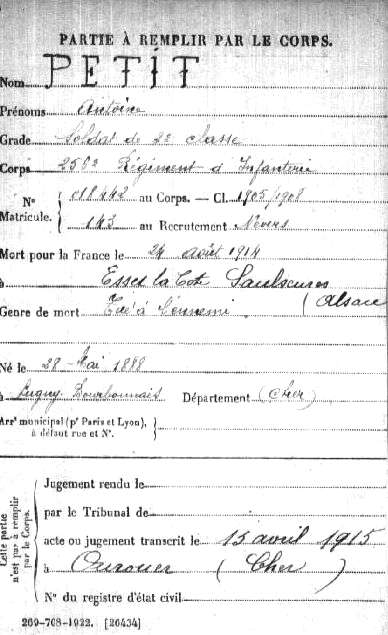 PARTIE À REMPLIR PAR LE CORPS.
Nom PETIT
Prénoms Antoine
Grade Soldat de 2e classe
Corps 256e Régiment d'Infanterie
N° Matricule. { 018442 au Corps. — Cl. 1905/1908
143 au Recrutement Nevers
Mort pour la France le 24 août 1914
à Esses la Côte Saulxures
(Alsace
Genre de mort Tué à l'ennemi
Né le 28 Mai 1888
à Bourbonnais Département (Cher)
Arrt municipal (pr Paris et Lyon), à défaut rue et N°. {
Cette partie n'est pas à remplir par le Corps. {
Jugement rendu le
par le Tribunal de
acte ou jugement transcrit le 15 avril 1915
à Ourouer (Cher)
N° du registre d'état civil
269-708-1922. [26434]